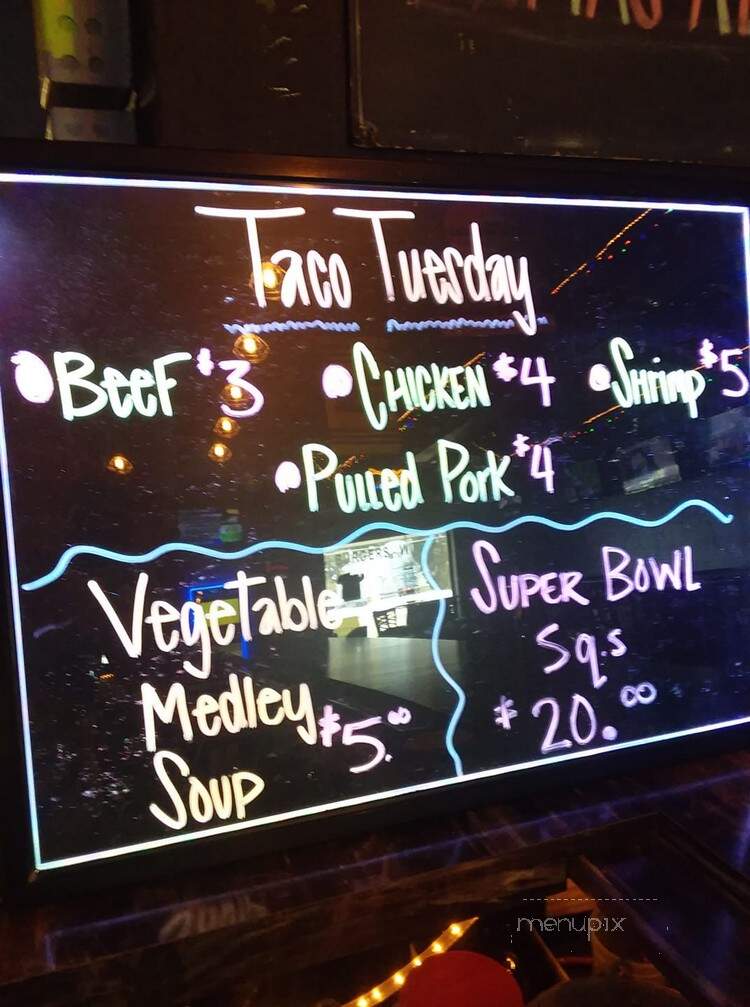 Taco Tuesday
BeeF $3 CHICKEN $4 Shrimp $5
Pulled Pork $4
Vegetable
Medley $5.00
Soup
SUPER BOWL
Sq.s
$20.00
menupix